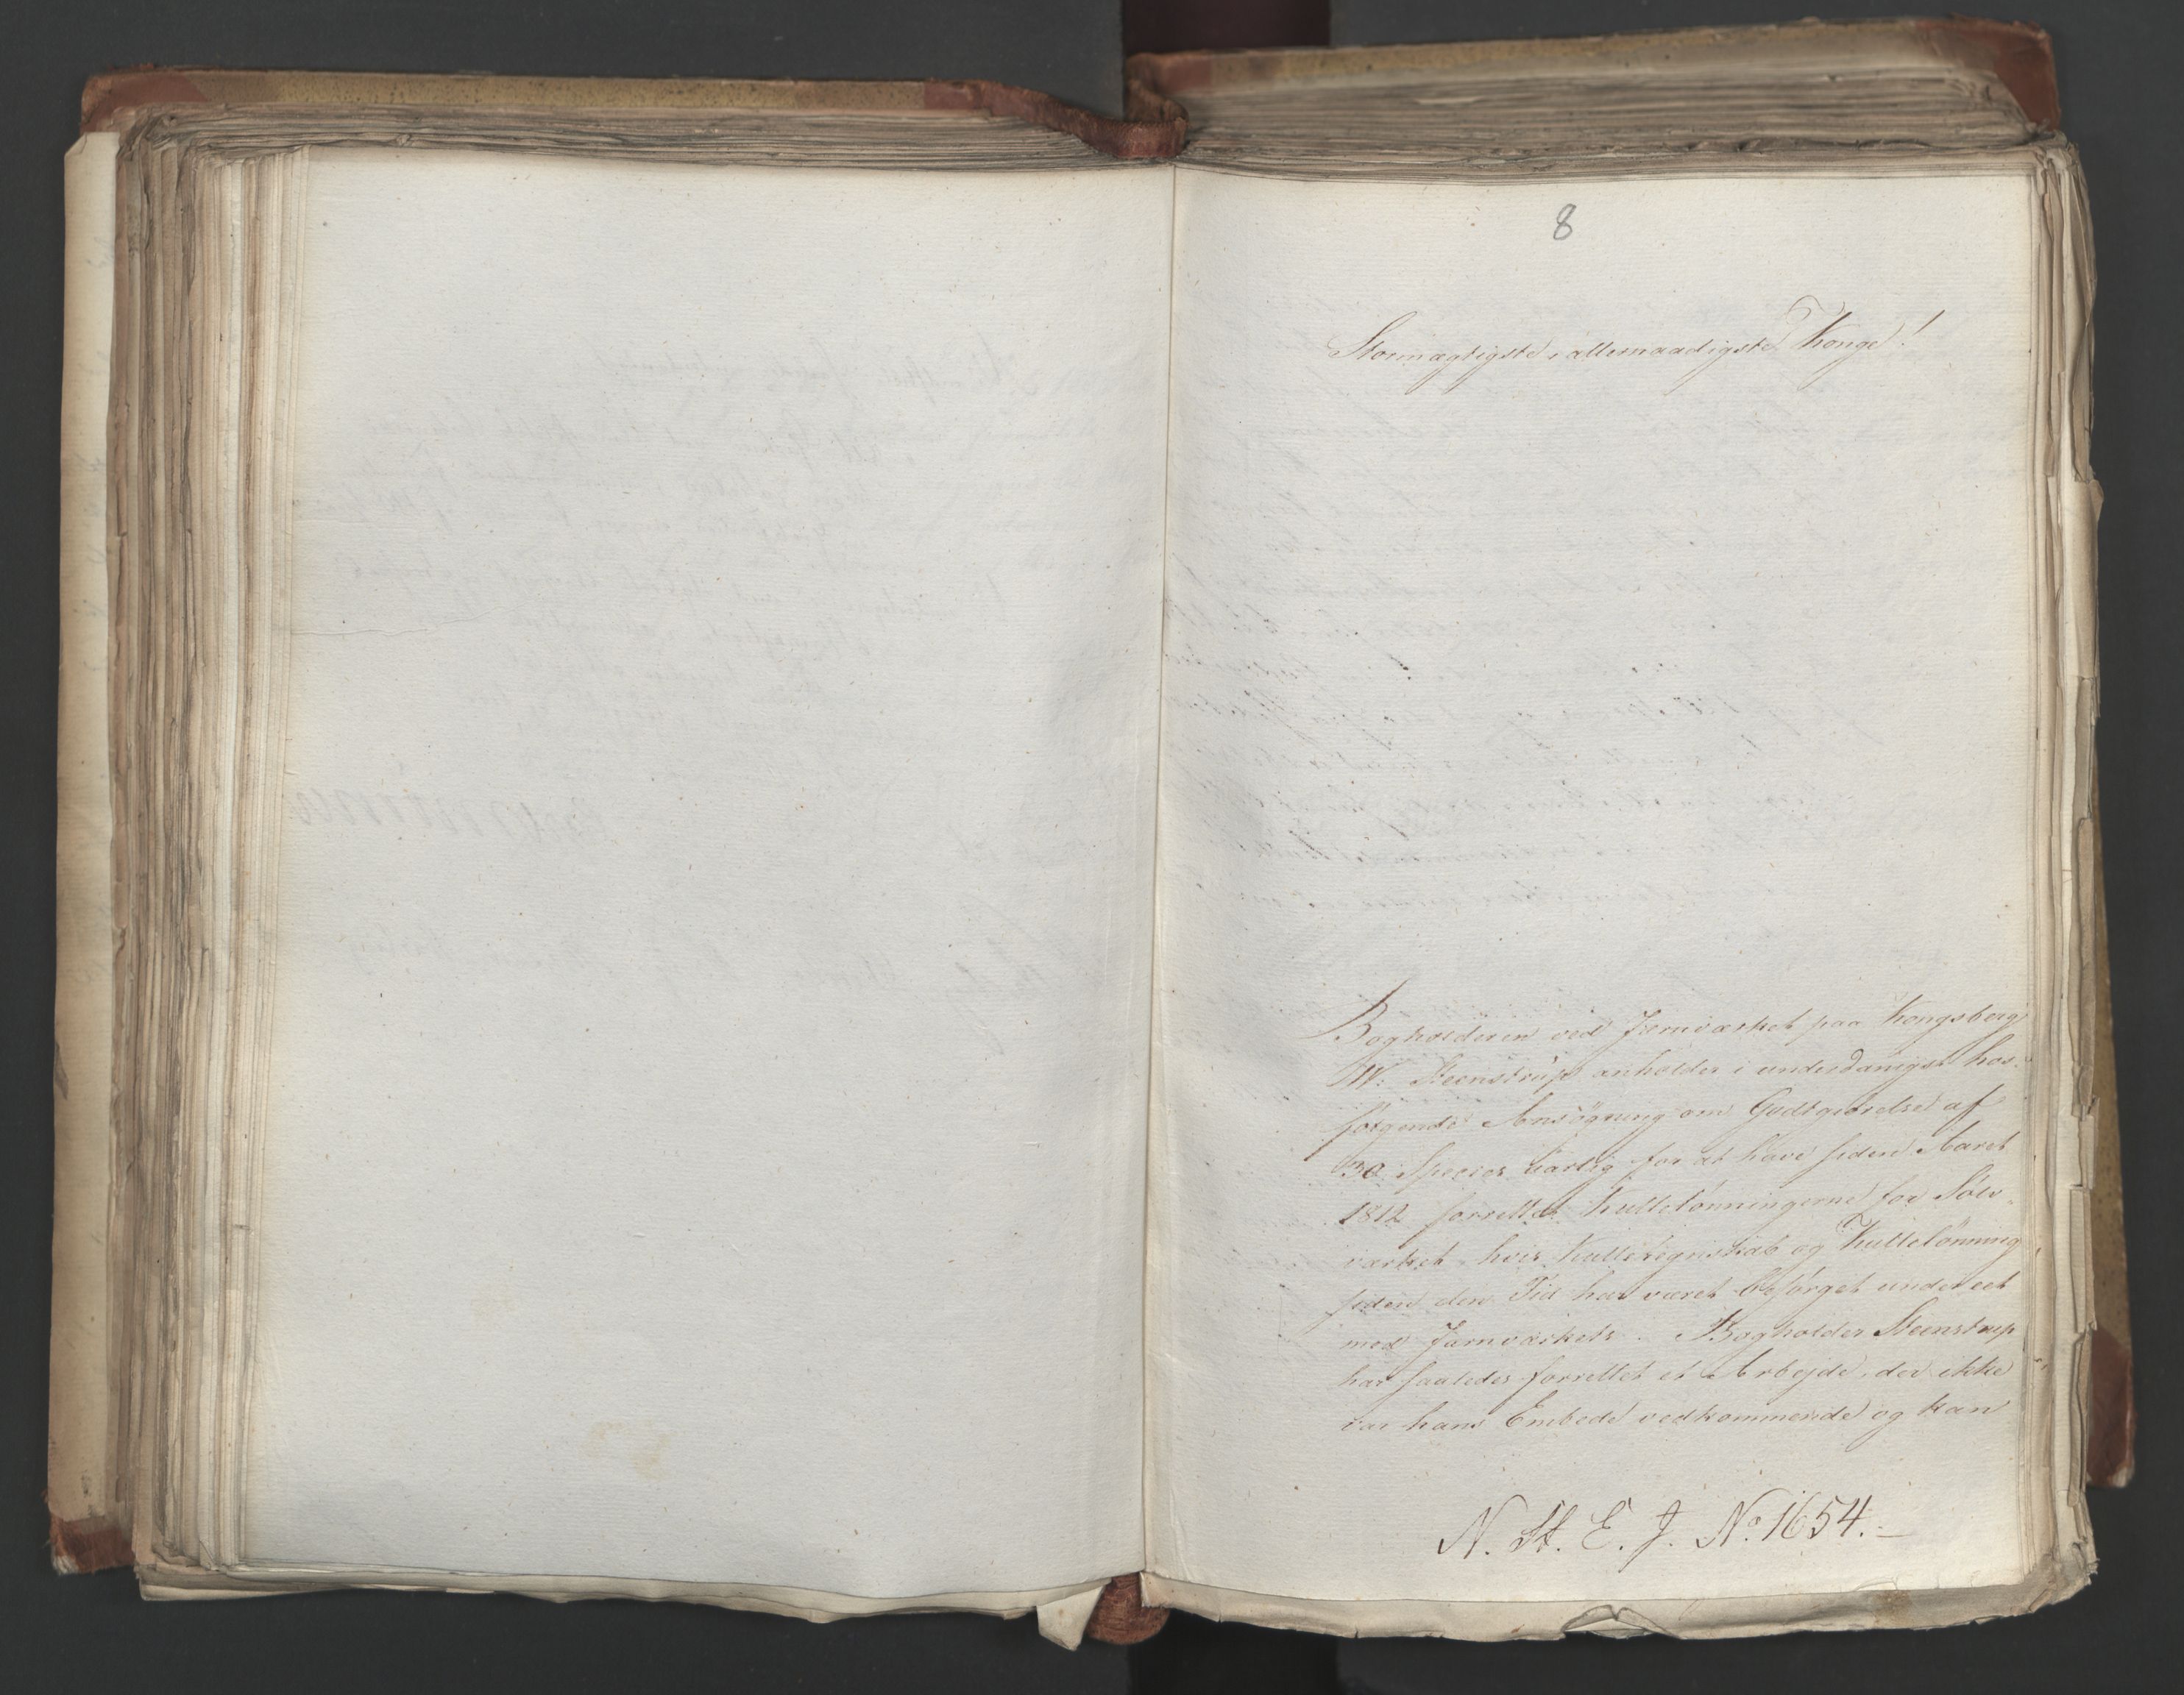 8
Stormægtigste, allernaadigste Konge!
Bogholderen ved Jernværket paa Kongsberg
W: Steenstrup anholder i underdanigst hos¬
følgende Ansøgning om Godtgiørelse af
30 Species aarlig for at have siden Aaret
1812 forrettet Kullelønningerne for Sølv-
værket, hvis Kulleregnskab og Kullelønning
siden den Tid har været besørget under eet
med Jernværkets. Bogholder Steenstrup
har saaledes forrettet et Arbejde, der ikke
var hans Embede vedkommende og kan
N. St. E. J. No 1654.-